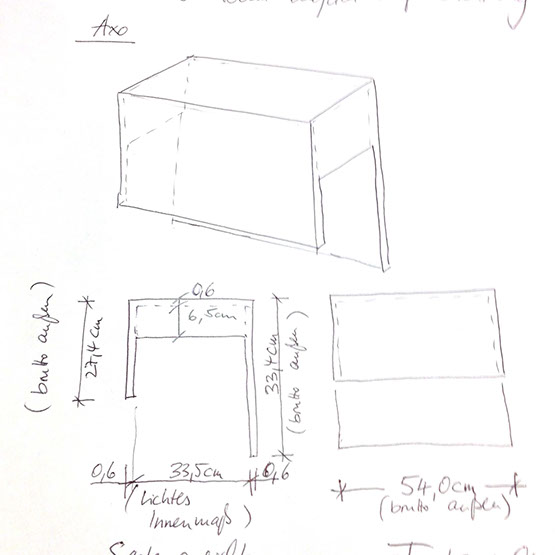 Axo
0,6
6,5cm
27,4cm
(brutto außen)
33,4cm
(brutto außen)
0,6
33,5cm
0,6
(Lichtes
Innenmaß)
54,0cm
(brutto außen)